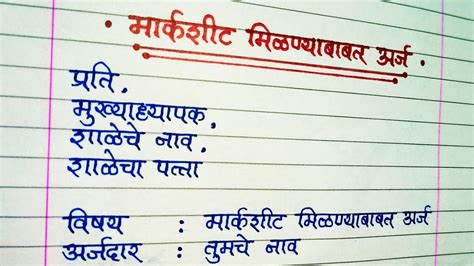 • मार्कशीट मिळण्याबाबत अर्ज •
प्रति,
मुख्याध्यापक,
शाळेचे नाव,
शाळेचा पत्ता
विषय : मार्कशीट मिळण्याबाबत अर्ज
अर्जदार : तुमचे नाव